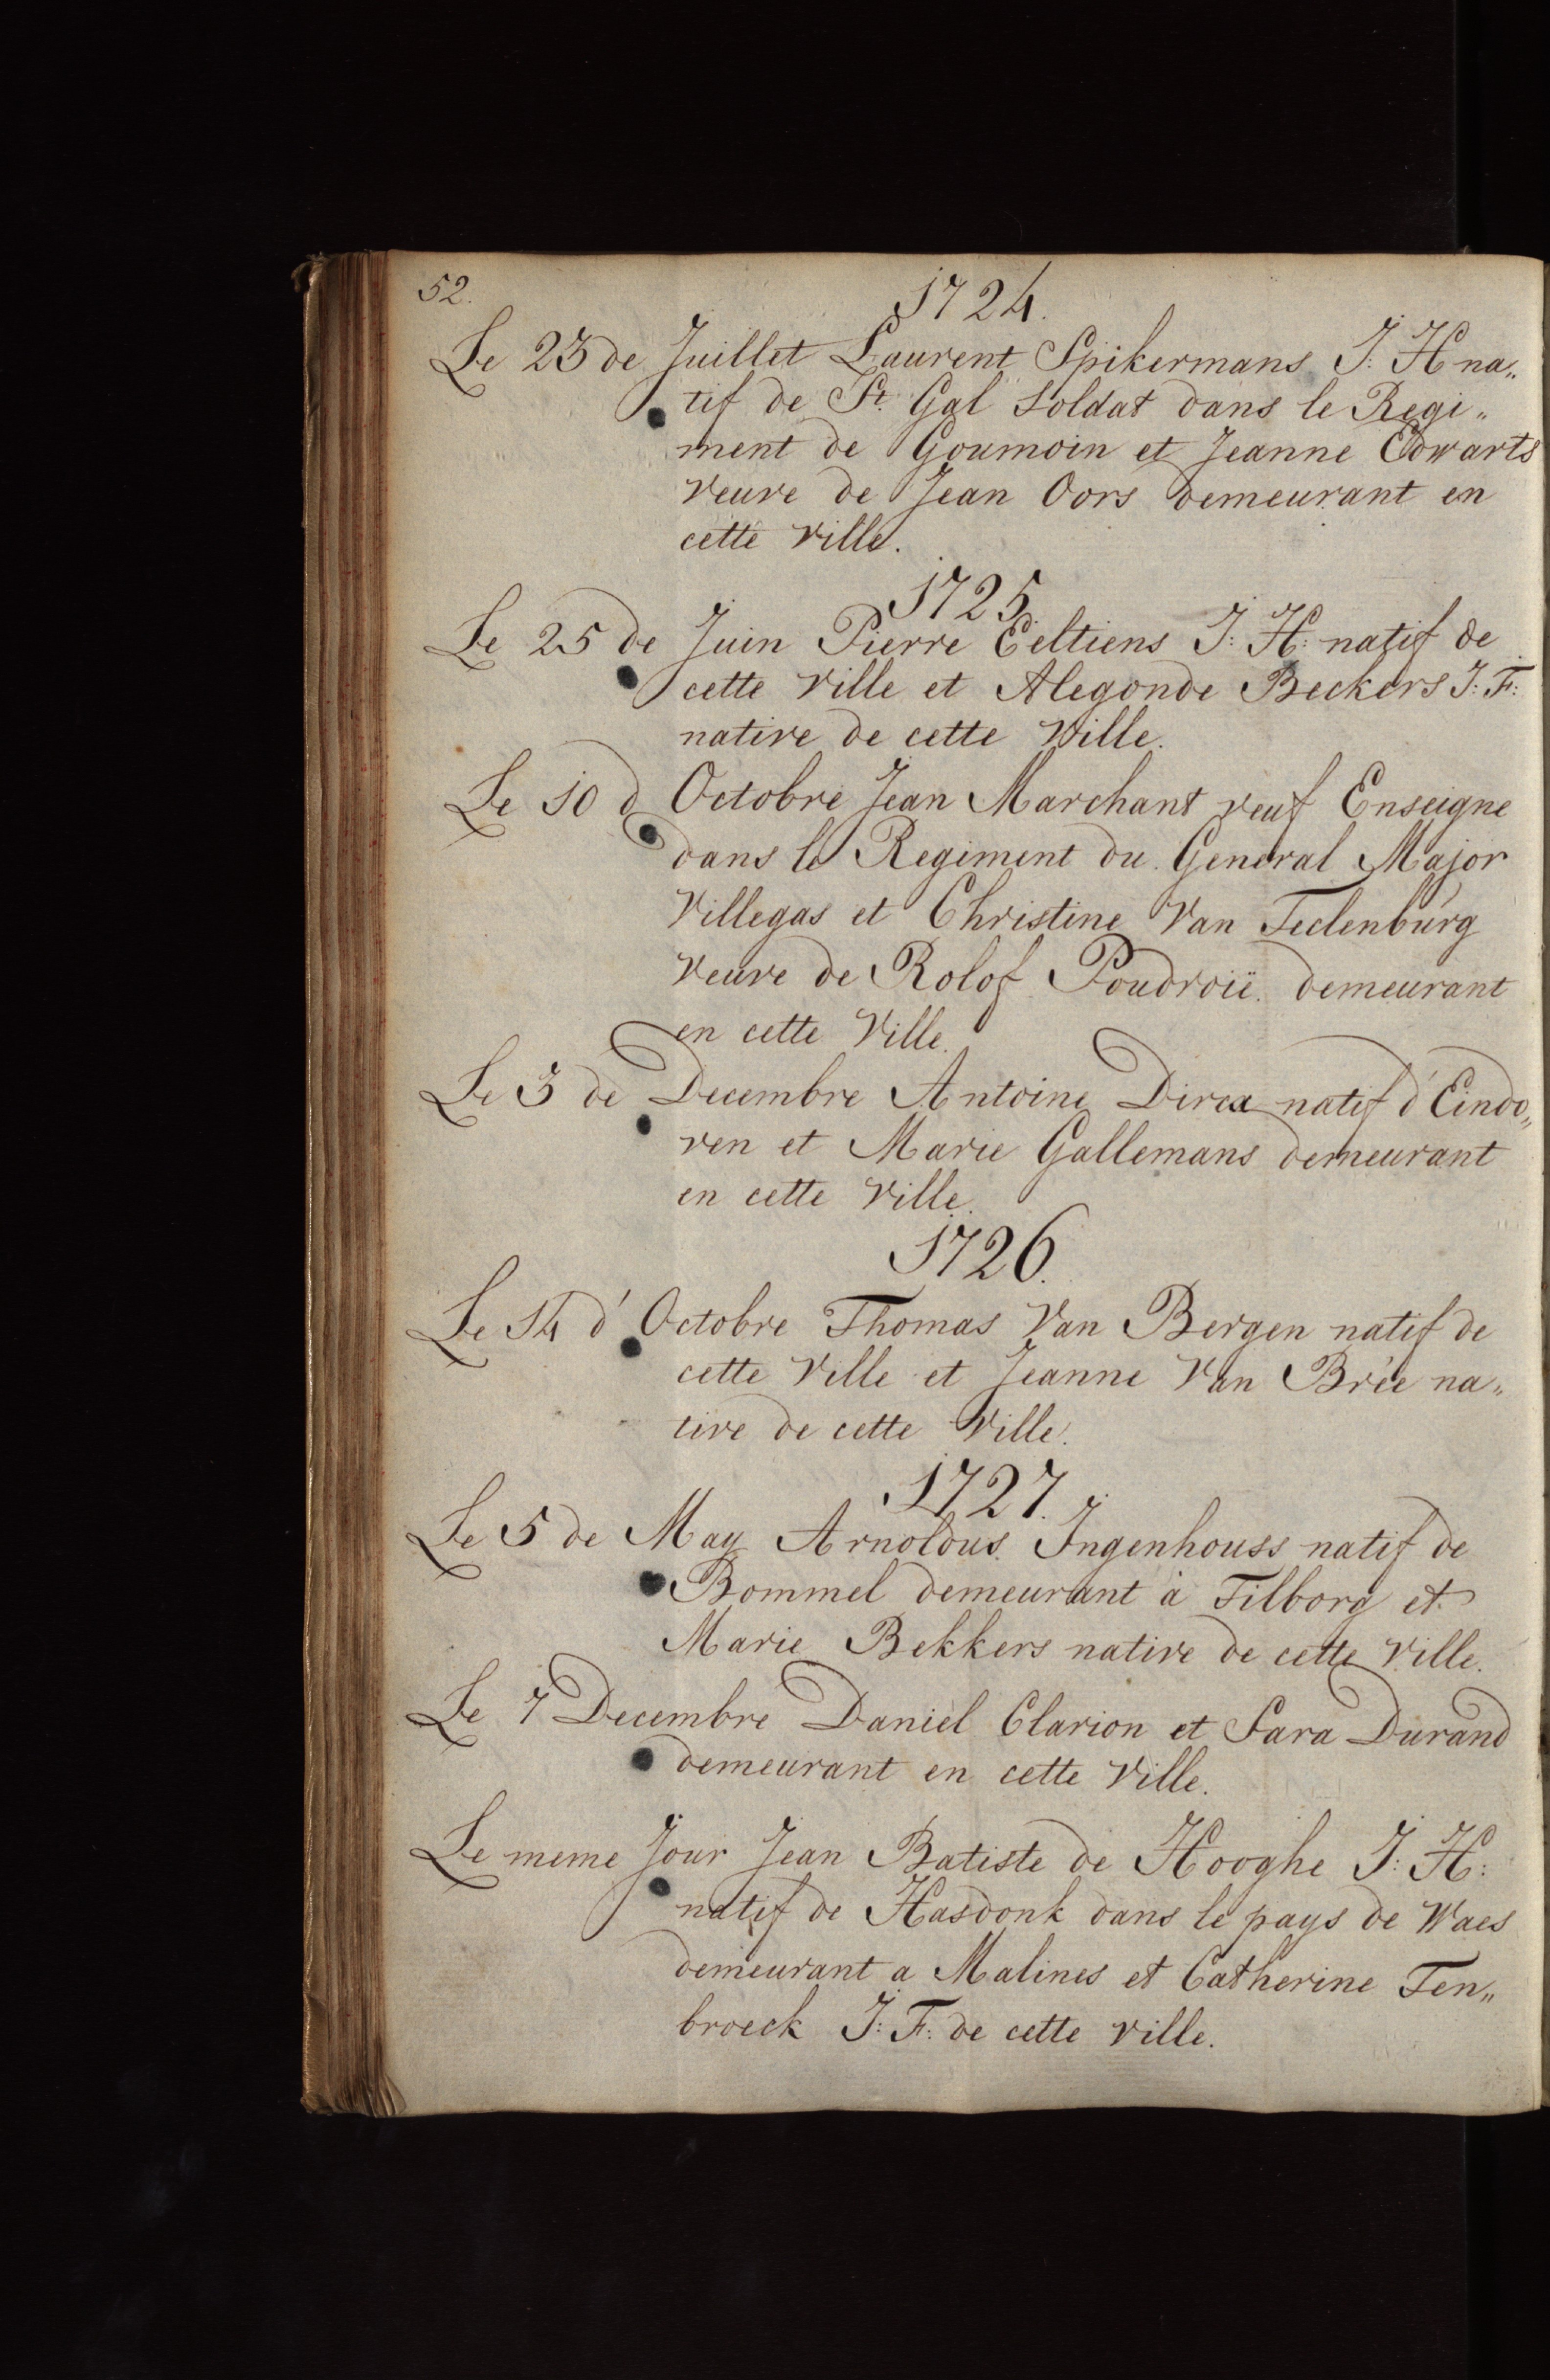 52.
1724.
Le 23 de Juillet Laurent Spikermans J: H na„
tif de St. Gal soldat dans le Regi„
ment de Goumoin et Jeanne Edwarts
veuve de Jean Oors demeurant en
cette ville.
1725.
Le 25 de Juin Pierre Eeltiens J: H: natif de
cette ville et Alegonde Beckers J: F:
native de cette Ville.
Le 10 d Octobre Jean Marchant veuf Enseigne
dans le Regiment du General Major
Villegas et Christine Van Teclenburg
veuve de Rolof Poudroië demeurant
en cette Ville.
Le 3 de Decembre Antoine Dircx natif d'Eindo„
ven et Marie Gallemans demeurant
en cette Ville.
1726.
Le 14 d'Octobre Thomas Van Bergen natif de
cette Ville et Jeanne Van Brée na„
tive de cette Ville.
1727.
Le 5 de May Arnoldus Ingenhouss natif de
Bommel demeurant à Tilborg et
Marie Bekkers native de cette Ville.
Le 7 Decembre Daniel Clarion et Sara Durand
demeurant en cette Ville.
Le meme Jour Jean Batiste de Hooghe J: H:
natif de Hasdonk dans le pays de Waes
demeurant a Malines et Catherine Ten„
broeck J: F: de cette ville.